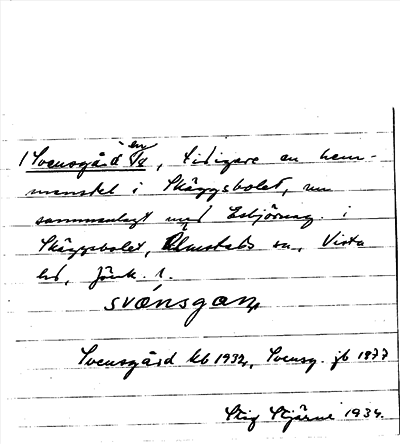 1 Svensgård -en 1/8, tidigare en hem-
mansdel i Skäggsbolet, nu
sammanlagt med Esbjörnsg. i
Skäggsbolet, Ölmstads sn, Vista
hd, Jönk. l.
svænsgaɳ
Svensgård kb 1932, Svensg. jb 1877
Stig Stjärne 1934.